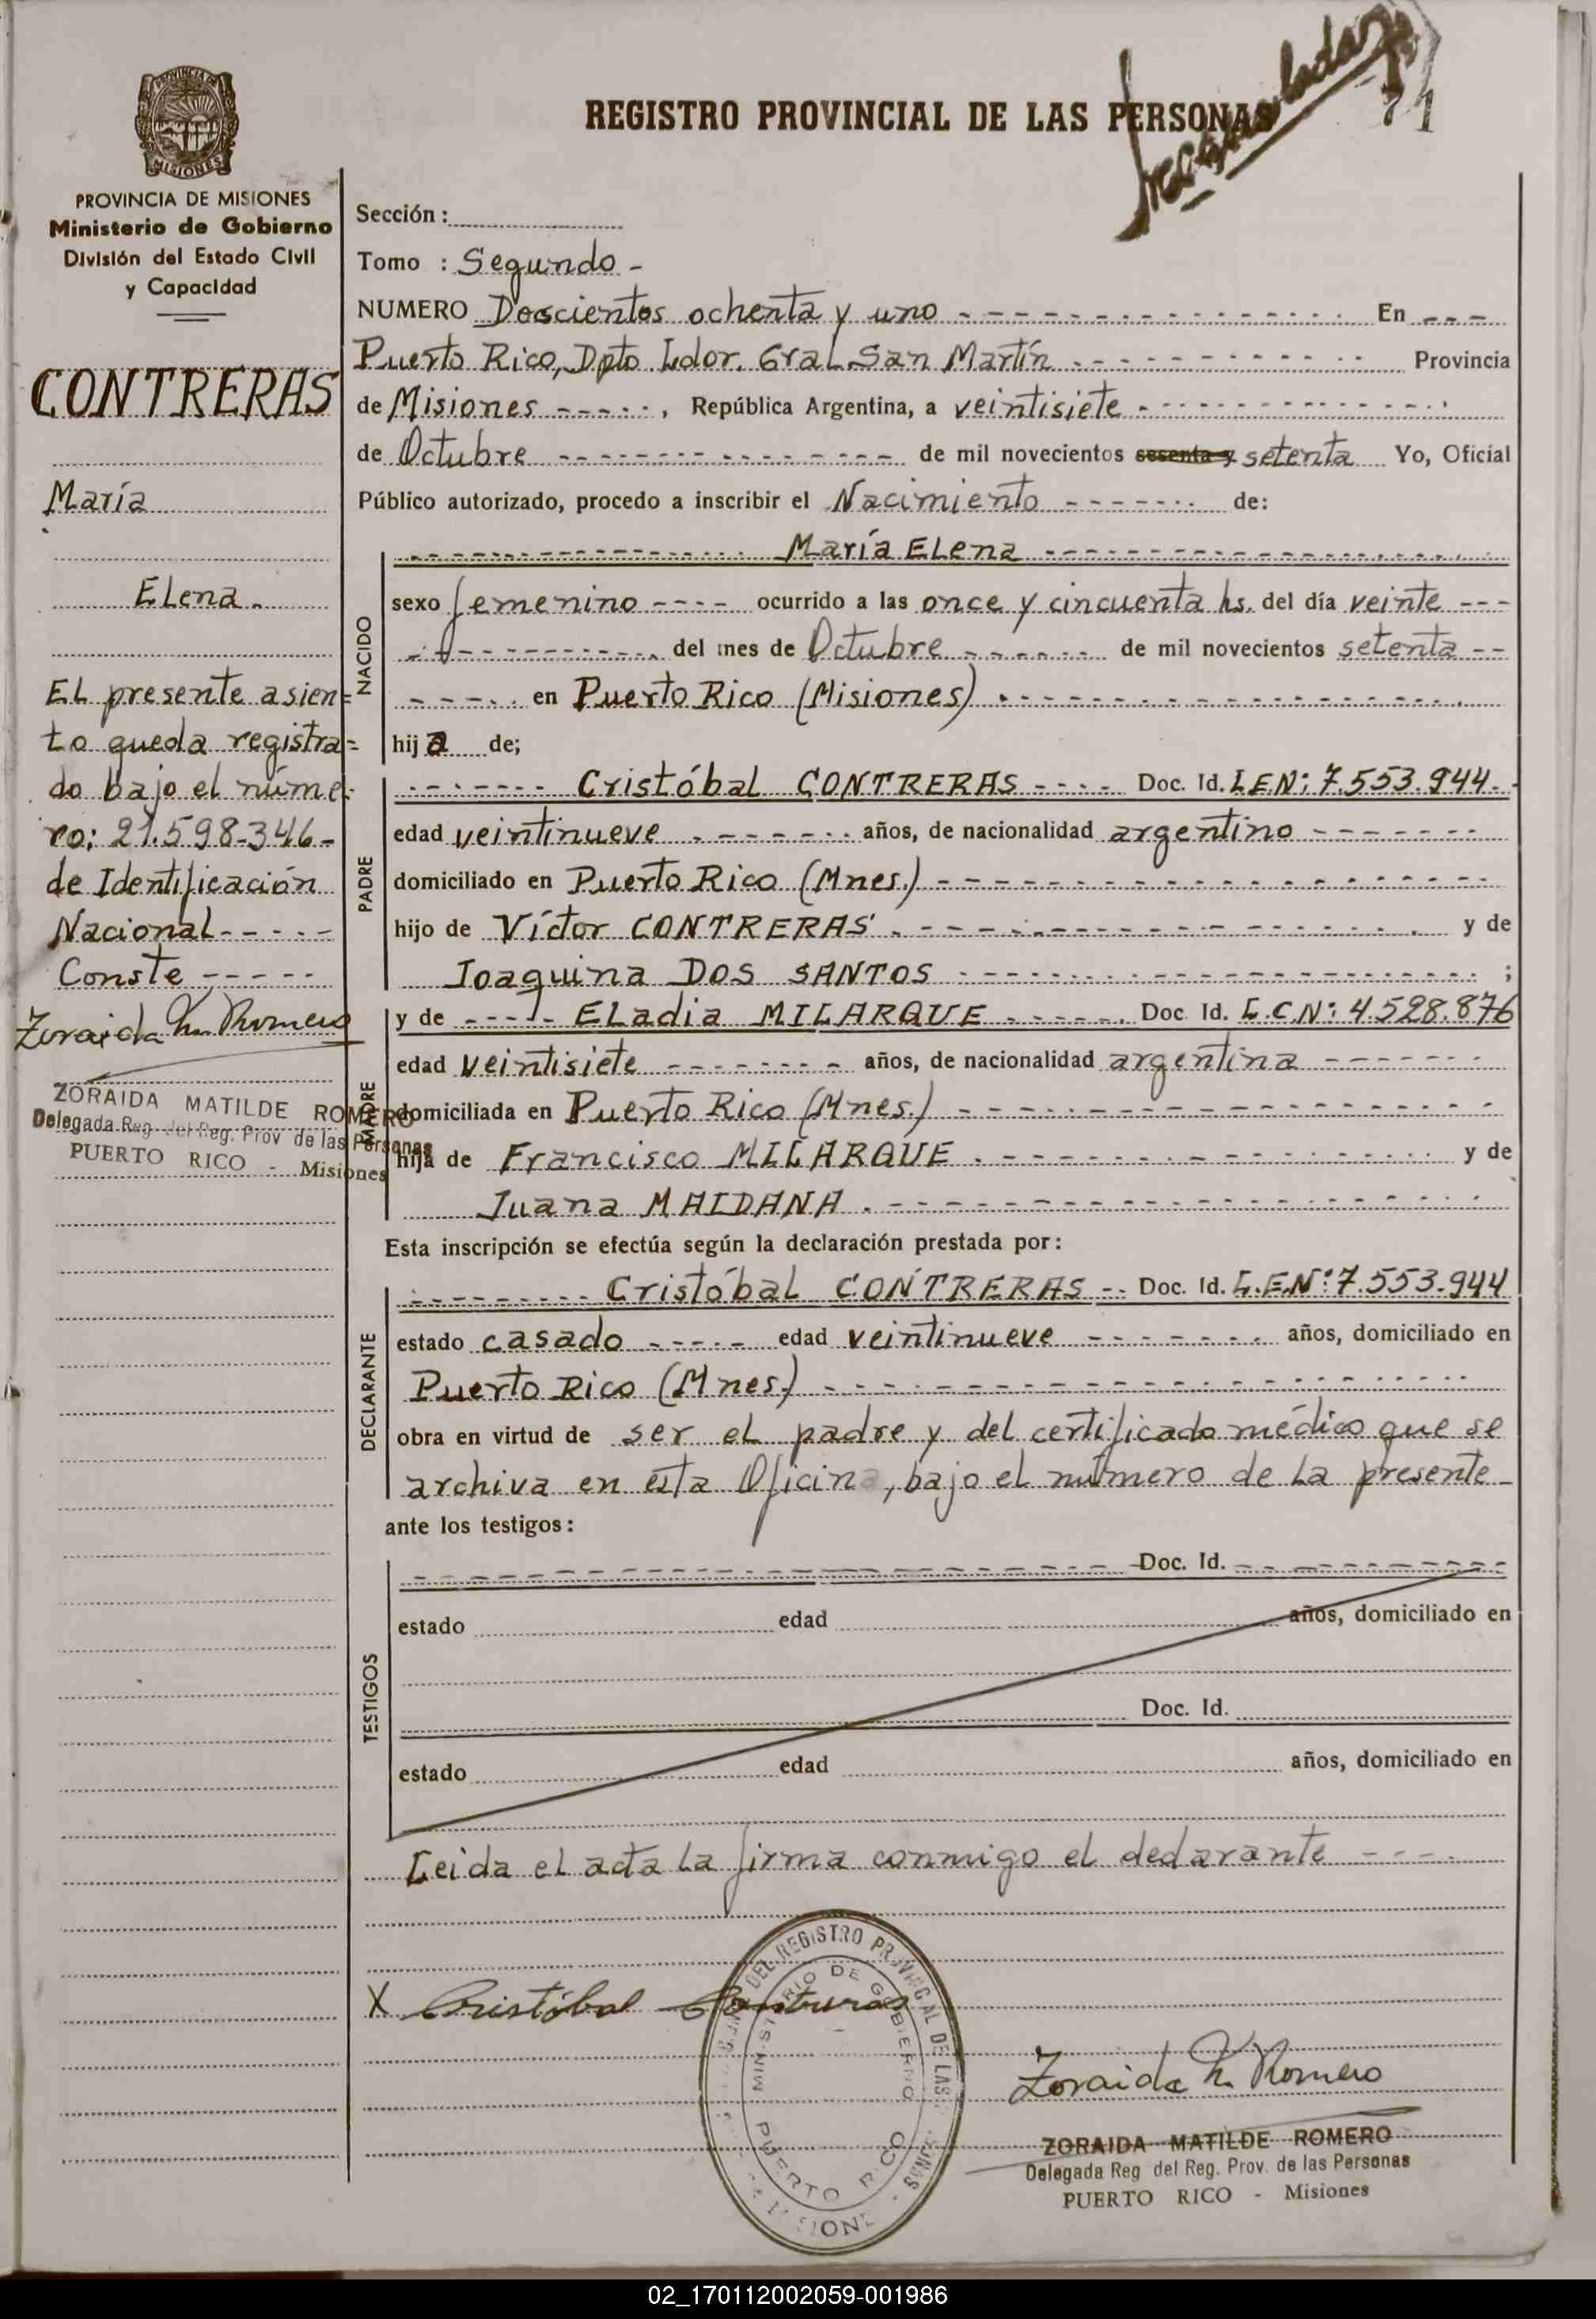 REGISTRO PROVINCIAL DE LAS PERSONAS
71
PROVINCIA DE MISIONES
MISIONES
PROVINCIA DE MISIONES
Ministerio de Gobierno
División del Estado Civil
y Capacidad
CONTRERAS
María
Elena.
EL presente asien=
to queda registra=
do bajo el núme=
ro: 21.598.346-
de Identificación
Nacional-----
Conste-----
Zoraida M. Romero
ZORAIDA MATILDE ROMERO
Delegada Reg. del Reg. Prov de las Personas
PUERTO RICO - Misiones
Sección:
Tomo : Segundo -
NUMERO Doscientos ochenta y uno - - - En ---
Puerto Rico, Dpto. Ldor. Gral. San Martín - - - Provincia
de Misiones -----, República Argentina, a veintisiete - - -
de Octubre - - - de mil novecientos sesenta y setenta Yo, Oficial
Público autorizado, procedo a inscribir el Nacimiento - - - de:
NACIDO
- - - María ELena - - -
sexo femenino ---- ocurrido a las once y cincuenta hs. del día veinte ---
- - - del mes de Octubre - - - de mil novecientos setenta --
- - - en Puerto Rico (Misiones) - - -
hija de;
PADRE
- - - Cristóbal CONTRERAS ---- Doc. Id. L.E.N: 7.553.944.-
edad veintinueve - - - años, de nacionalidad argentino - - -
domiciliado en Puerto Rico (Mnes.) - - -
hijo de Víctor CONTRERAS - - - y de
Joaquina DOS SANTOS - - - ;
MADRE
y de ---- ELadia MILARQUE - - - Doc. Id. L.C.N: 4.528.876
edad veintisiete - - - años, de nacionalidad argentina - - -
domiciliada en Puerto Rico (Mnes.) - - -
hija de Francisco MILARQUE - - - y de
Juana MAIDANA - - -
Esta inscripción se efectúa según la declaración prestada por:
DECLARANTE
- - - Cristóbal CONTRERAS -- Doc. Id. L.E.N: 7.553.944
estado casado ----- edad veintinueve - - - años, domiciliado en
Puerto Rico (Mnes.) - - -
obra en virtud de ser el padre y del certificado médico que se
archiva en esta Oficina, bajo el número de la presente-
ante los testigos:
TESTIGOS
- - - Doc. Id. - - -
estado edad años, domiciliado en
Doc. Id.
estado edad años, domiciliado en
Leida el acta la firma conmigo el declarante ----
X Cristóbal Contreras
DEL REGISTRO PROVINCIAL DE LAS
MINISTERIO DE GOBIERNO
PUERTO RICO
Zoraida M. Romero
ZORAIDA MATILDE ROMERO
Delegada Reg del Reg. Prov. de las Personas
PUERTO RICO - Misiones
02_170112002059-001986